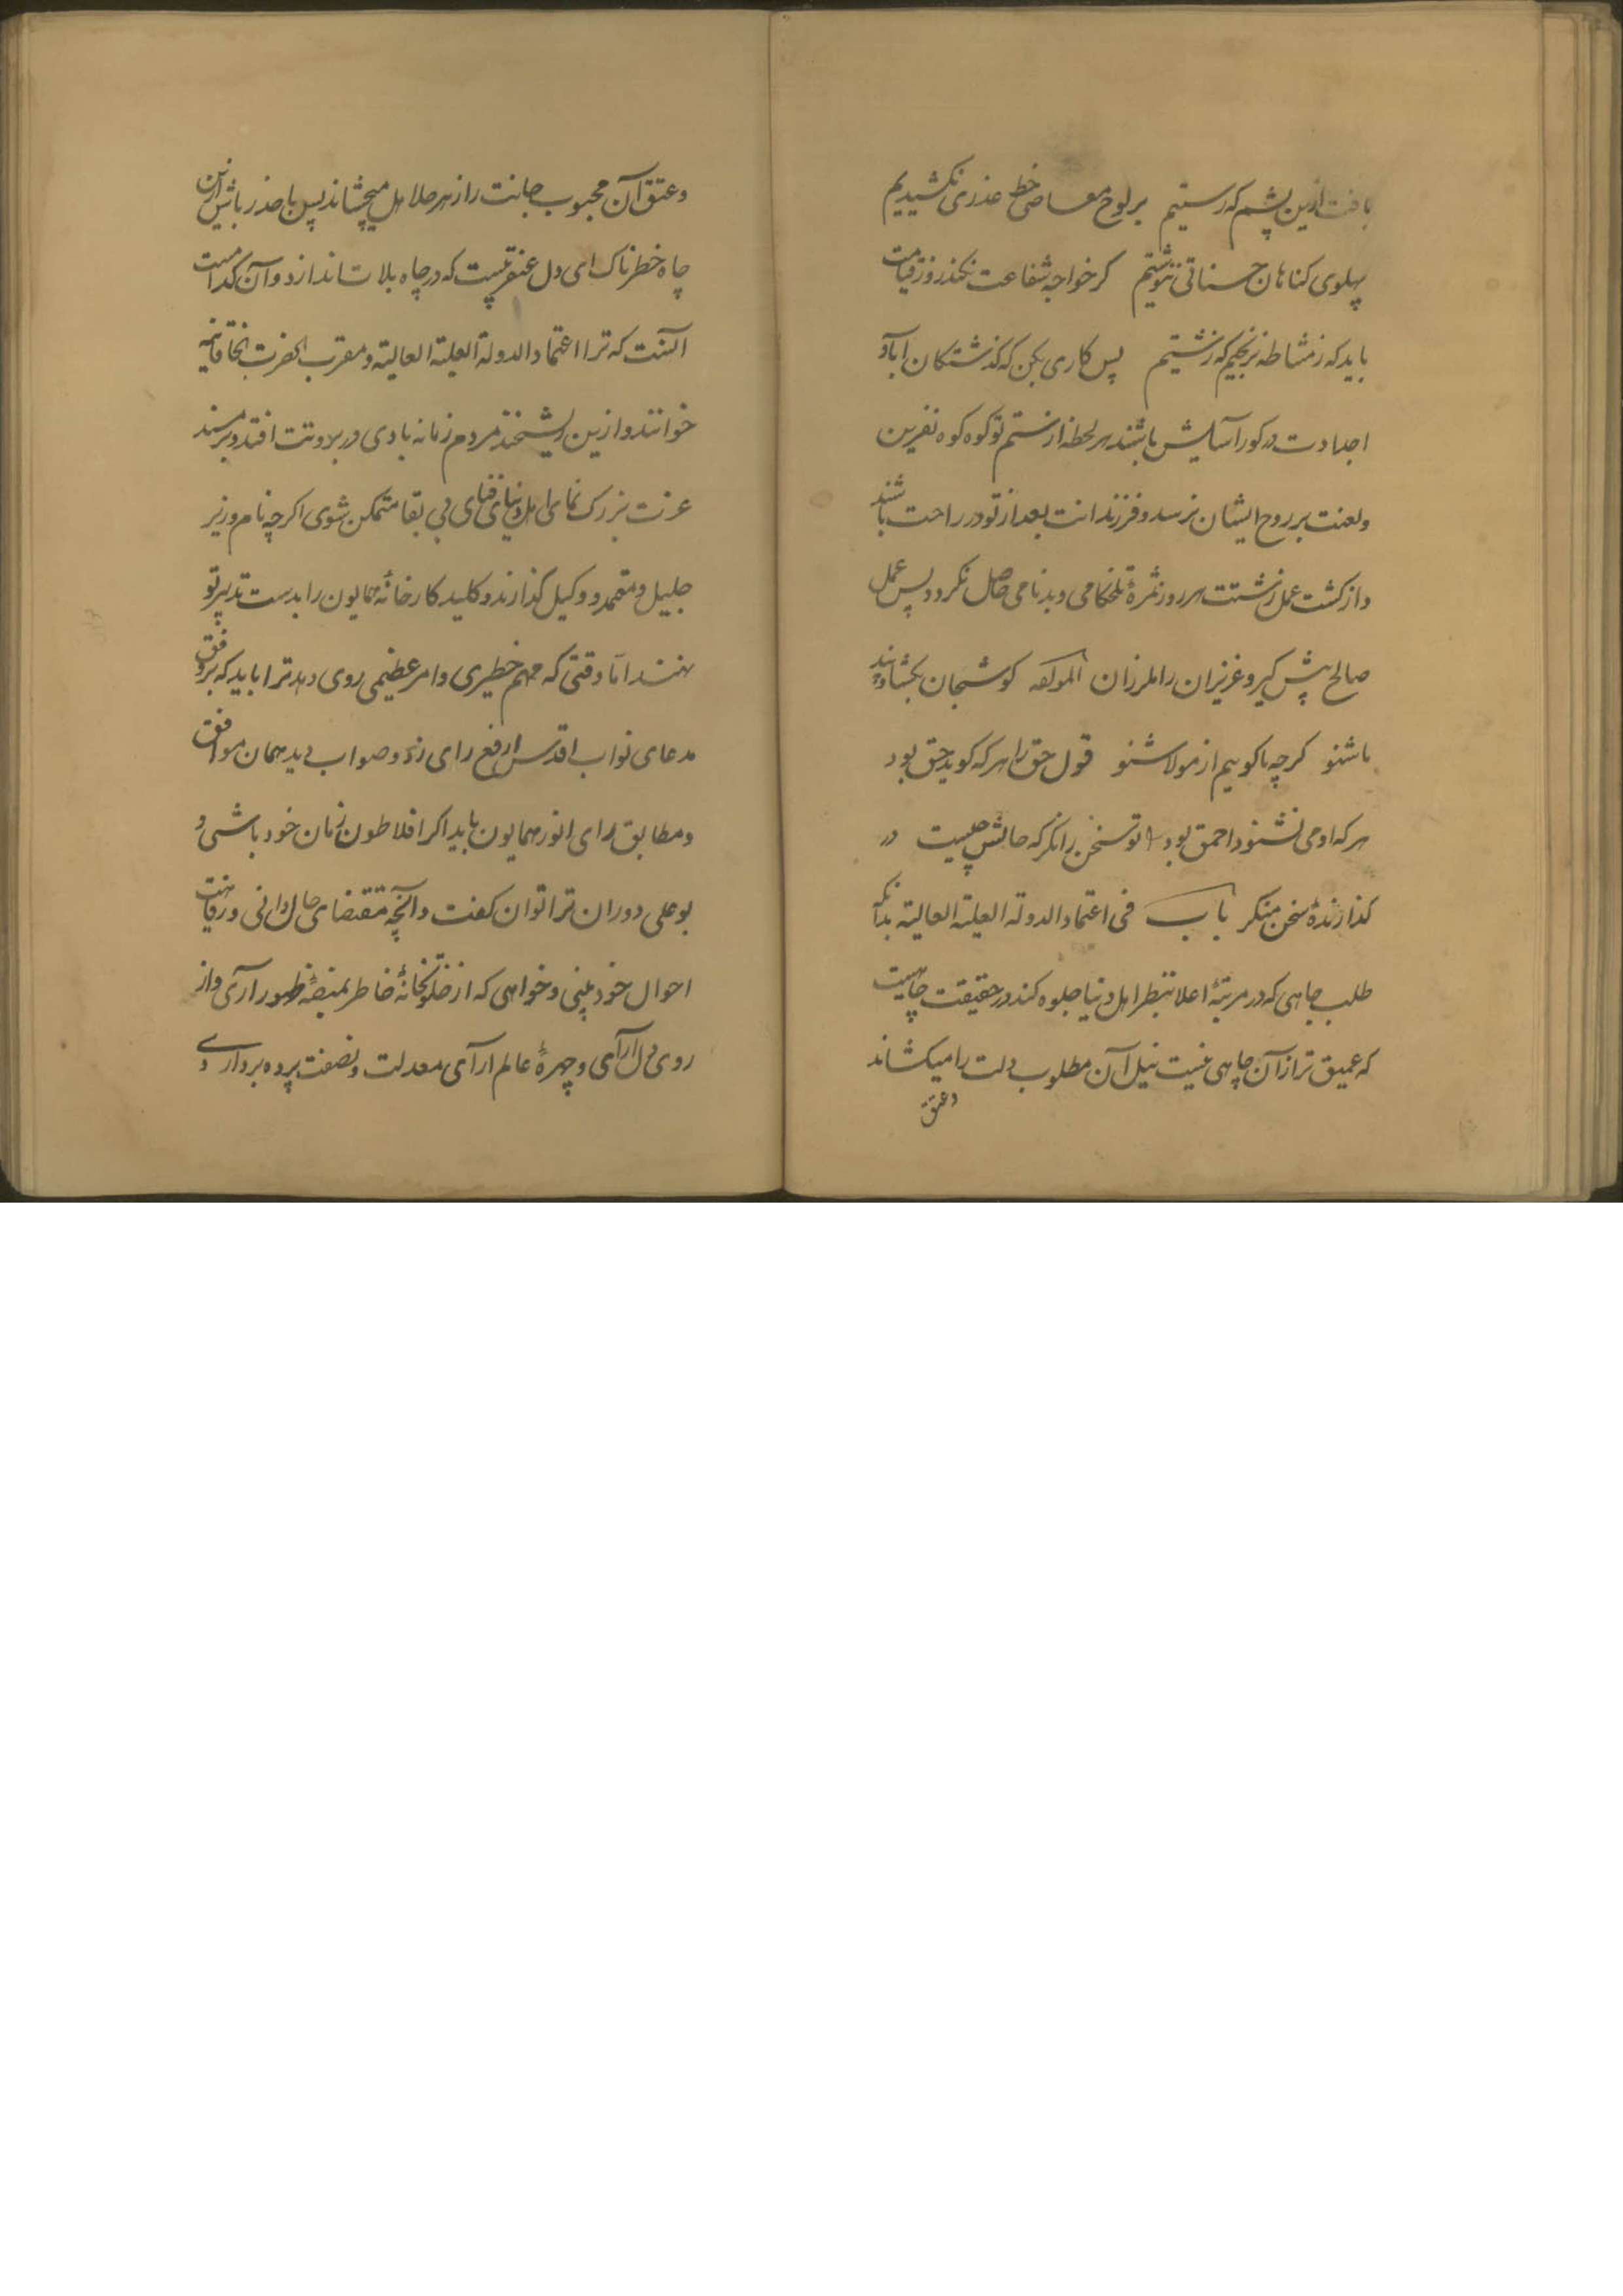 بافت ازین پشم که رستیم بر لوح معاصی خط عذری نکشیدیم
پهلوی کناهان حسناتی ننوشتیم کر خواجه شفاعت نکند روز قیامت
باید که ز مشاطه نرنجیم که زشتیم پس کاری بکن که کذشتکان آبا و
اجدادت در کور آسایش باشند هر لحظه از ستم تو کوه کوه نفرین
و لعنت بر روح ایشان نرسد و فرزندانت بعد از تو در راحت باشند
و از کشت عمل زشتت هر روز ثمرهٔ تلخکامی و بدنامی حاصل نکرود پس عمل
صالح پیش کیر و عزیزان را ملرزان لمؤلفه کوش جان بکشا و پند
ما شنو کرچه ما کوییم از مولا شنو قول حق را هر که کوید حق بود
هر که او می نشنود احمق بود تو سخن را نکر که حالش چیست در
کذارندهٔ سخن منکر باب فی اعتماد الدولة العلیة العالیة بدانکه
طلب جاهی که در مرتبهٔ اعلا بنظر اهل دنیا جلوه کند در حقیقت چاهیست
که عمیق تر از آن چاهی نیست نیل آن مطلوب دلت را میکشاند
و عتق
و عتق آن محبوب جانت را زهر هلاهل میچشاند پس با حذر باش ازین
چاه خطرناک ای دل عنقریبست که در چاه بلات اندازد و آن کدامست
آنست که ترا اعتماد الدولة العلیة العالیة و مقرب الحضرت الخاقانیه
خوانند و ازین ریشخند مردم زمانه بادی در بروتت افتد و بر مسند
عزت بزرک نمای اهل دنیای فنای بی بقا متمکن شوی اکرچه نام وزیر
جلیل و معتمد و وکیل کذارند و کلید کارخانهٔ همایون را بدست تدبیر تو
نهند اما وقتی که مهم خطیری و امر عظیمی روی دهد ترا باید که بر وفق
مدعای نواب اقدس ارفع رای زد و صواب دید همان موافق
و مطابق رای انور همایون باید اکر افلاطون زمان خود باشی و
بو علی دوران ترا توان کفت و آنچه مقتضای حال دانی و رفاهیت
احوال خود بینی و خواهی که از خلوتخانهٔ خاطر بمنصهٔ ظهور آری و از
روی دل آرای و چهرهٔ عالم آرای معدلت و نصفت پرده برداری و